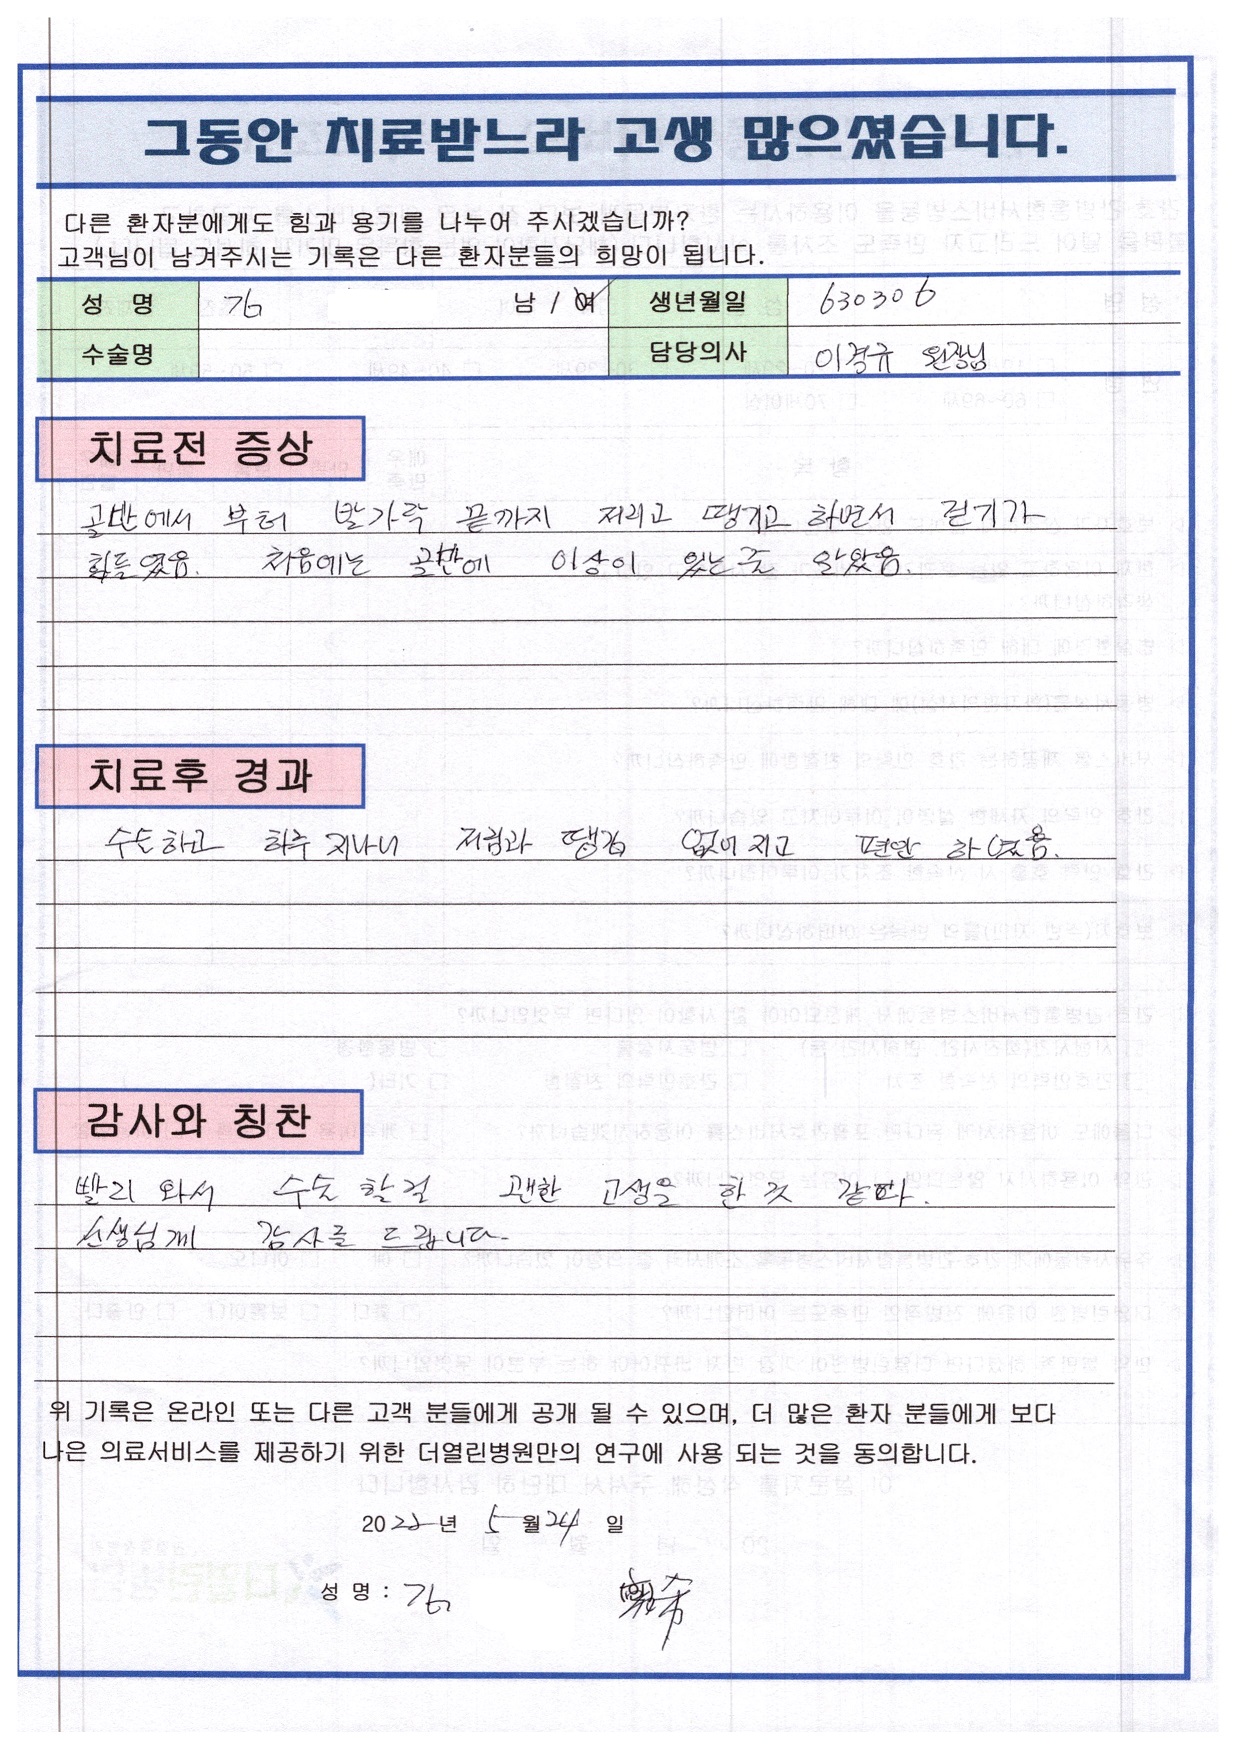 그동안 치료받느라 고생 많으셨습니다.
다른 환자분에게도 힘과 용기를 나누어 주시겠습니까?
고객님이 남겨주시는 기록은 다른 환자분들의 희망이 됩니다.
성 명 김 남 / 여 생년월일 630306
수술명 담당의사 이경규 원장님
치료전 증상
골반에서 부터 발가락 끝까지 저리고 땡기고 하면서 걷기가
힘들었음. 처음에는 골반에 이상이 있는줄 알았음.
치료후 경과
수술하고 하루 지나니 저림과 땡김 없어지고 편안 하였음.
감사와 칭찬
빨리 와서 수술 할걸 괜한 고생을 한 것 같다.
선생님께 감사를 드립니다.
위 기록은 온라인 또는 다른 고객 분들에게 공개 될 수 있으며, 더 많은 환자 분들에게 보다
나은 의료서비스를 제공하기 위한 더열린병원만의 연구에 사용 되는 것을 동의합니다.
2022년 5월 24 일
성 명 : 김